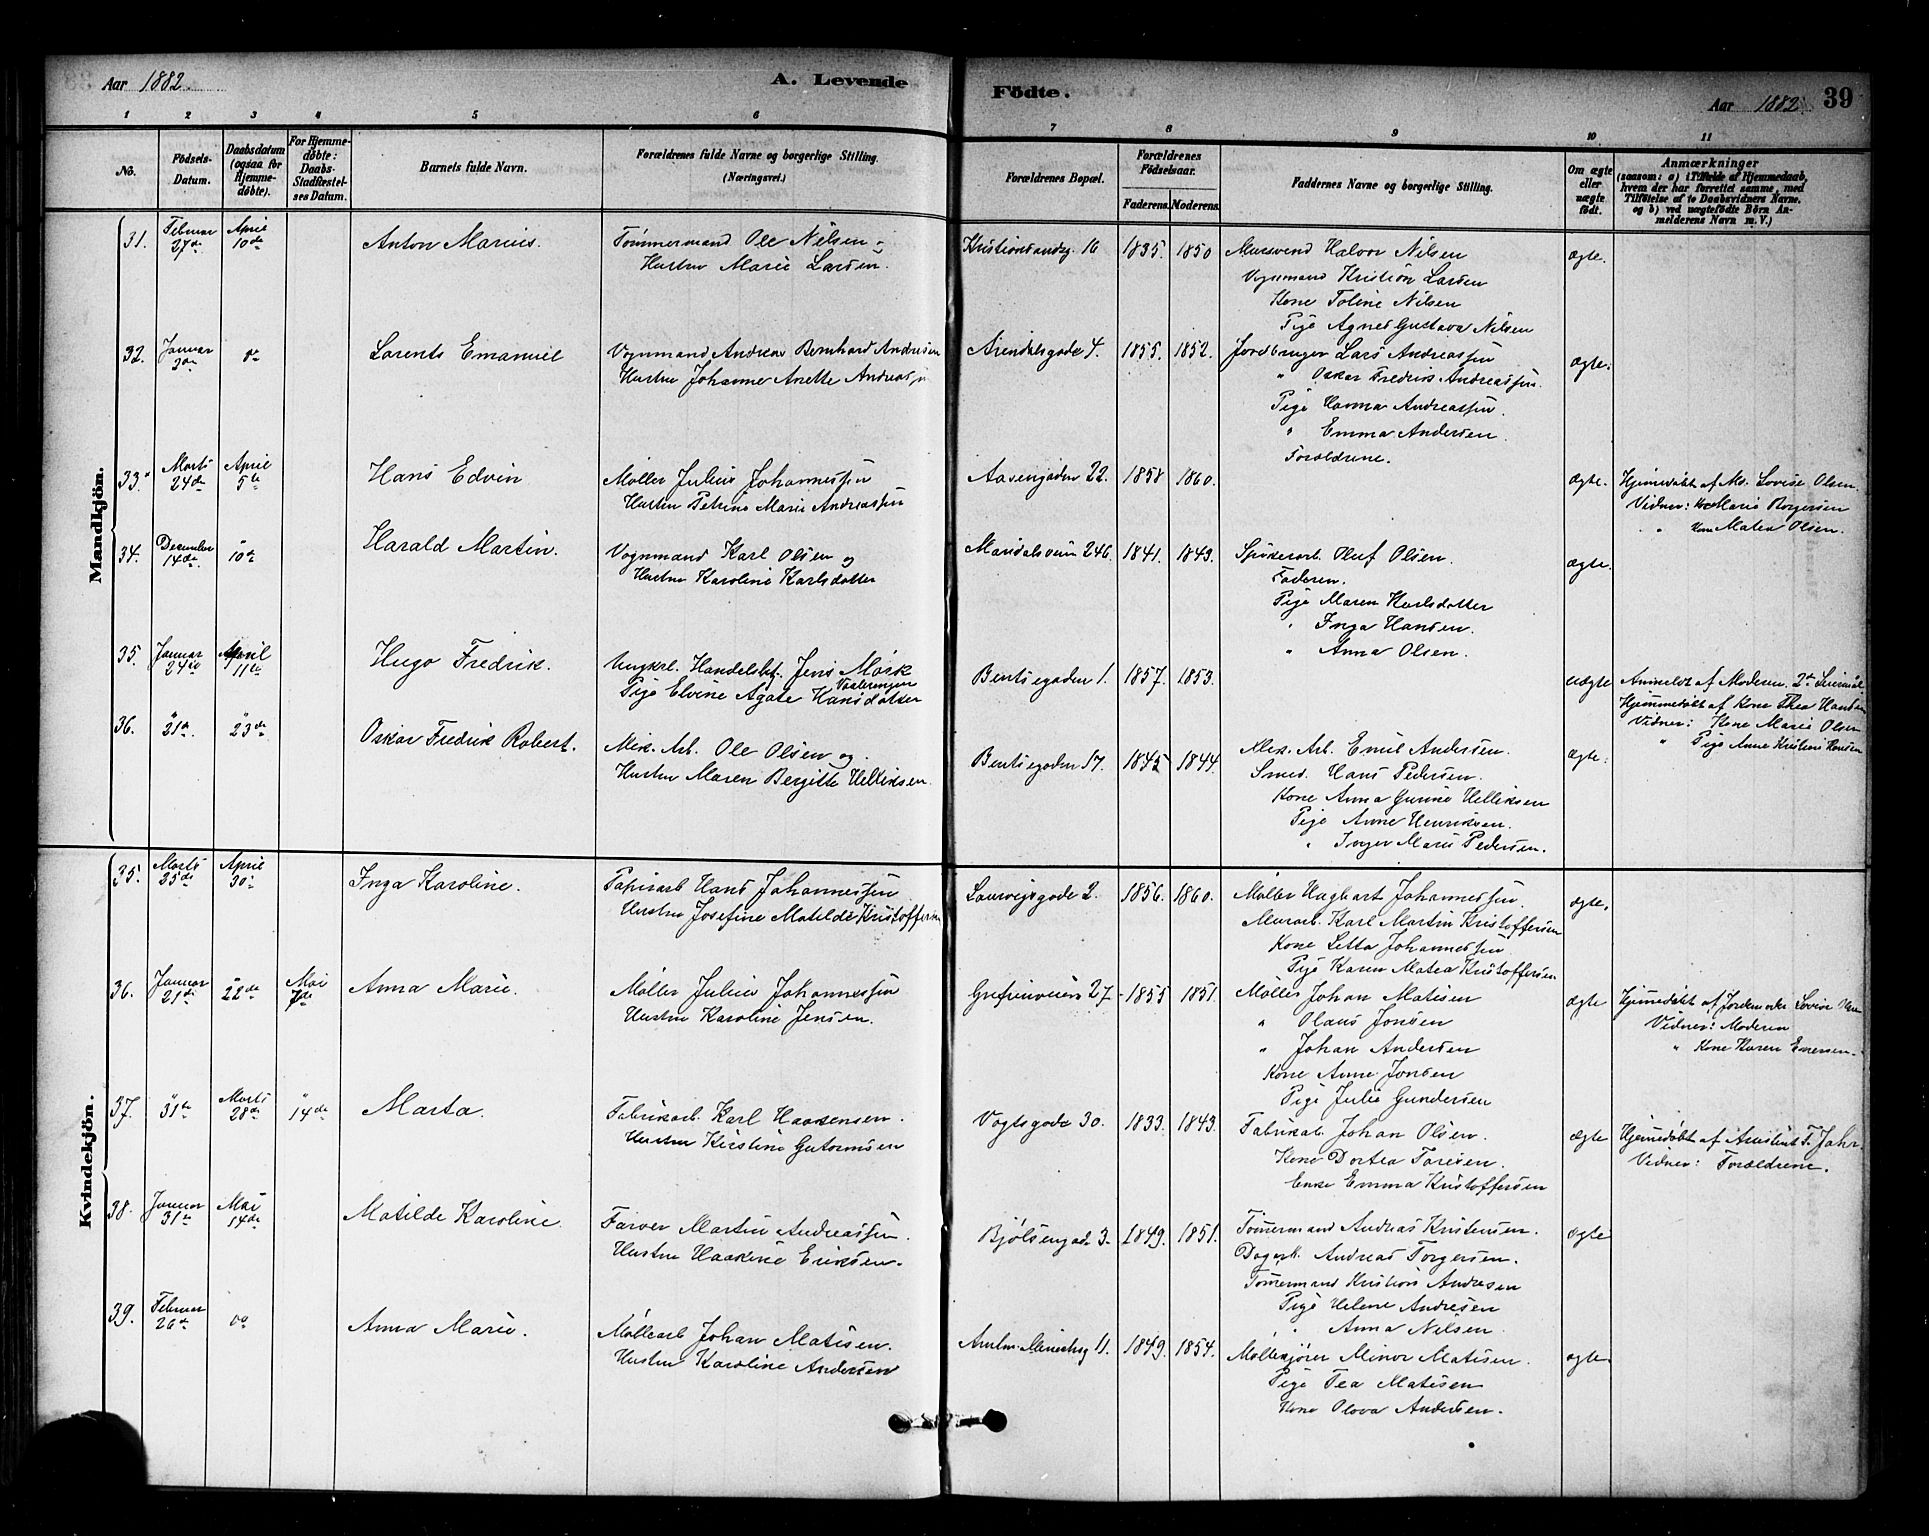 Aar 1882. A. Levende Födte. Aar 1882. 39
1 2 3 4 5 6 7 8 9 10 11
No. Födsels-Datum. Daabsdatum (ogsaa for Hjemmedöbte). For Hjemmedöbte: Daabs-Stadfæstelses Datum. Barnets fulde Navn. Forældrenes fulde Navne og borgerlige Stilling. (Næringsvei.) Forældrenes Bopæl. Forældrenes Födselsaar. Faderens. Moderens. Faddernes Navne og borgerlige Stilling. Om ægte eller uægte födt. Anmærkninger (saasom: a) i Tilfælde af Hjemmedaab, hvem der har forrettet samme, med Tilföielse af to Daabsvidners Navne, og b) ved uægtefödte Börn Anmelderens Navn m. V.)
Mandkjön.
31. Februar 27de April 10de Anton Marius. Tømmermand Ole Nilsen Kristiansandsg. 16 1835. 1850 Mursvend Halvor Nilsen ægte.
Hustru Marie Larsen. Vognmand Kristian Larsen
Kone Toline Nilsen
Pige Agnes Gustava Nilsen
32. Januar 30te Lorents Emanuel Vognmand Andreas Bernhard Andresen Arendalsgade 4. 1855. 1852. Jordbruger Lars Andreassen ægte.
Hustru Johanne Anette Andreassen " Oskar Fredrik Andreassen.
Pige Hanna Andreassen.
" Emma Andersen.
Forældrene.
33. Marts 24de April 5te Hans Edvin Møller Julius Johannessen Aasengaden 22. 1858 1860. ægte. Hjemmedøbt af Lovise Olsen.
Hustru Petrine Marie Andreassen Vidner: Kone Marie Borgersen
" Kone Matea Olsen.
34. December 14de " 10de Harald Martin. Vognmand Karl Olsen og Mandalsveien 246. 1841. 1843. Oluf Olsen. ægte.
Hustru Karoline Karlsdatter Faderen.
Pige Maren Karlsdatter
" Inga Hansen.
" Anna Olsen.
35. Januar 24de April 11te Hugo Fredrik. Ungkrl. Handelsbet. Jens Mørk Bentsegaden 1. 1857. 1853. uægte Anmeldt af Moderen.
Vaaleringen
Pige Elvine Agate Hansdatter Hjemmedøbt af Kone Thea Hansen
Vidner: Kone Marie Olsen
" Pige Anne Kristine Hansen
36. " 21de " 23de Oskar Fredrik Robert. Mek. Arb. Ole Olsen og Bentsegaden 17. 1845 1844. Mek. Arb. Emil Andersen. ægte.
Hustru Maren Bergitte Helliksen. Smed. Hans Pedersen.
Kone Anna Gurine Helliksen
Pige Anne Henriksen.
" Inger Marie Pedersen.
Kvindekjön.
35. Marts 25de April 30te Inga Karoline. Papirarb Hans Johannessen Laurvigsgade 2. 1856. 1860. Møller Hagbart Johannessen. ægte.
Hustru Josefine Matilde Kristoffersen Murarb. Karl Martin Kristoffersen
Kone Johannessen
Pige Karen Matea Kristoffersen
36. Januar 21de " 22de Mai 7de Anna Marie. Møller Julius Johannessen Grefsenveien 27 1855 1851. Møller Johan Matisen ægte Hjemmedøbt af Jordemoder Lovise
Hustru Karoline Jensen. " Olaus Jonsen Vidner: Moderen
" Johan Andersen " Kone Karen
Kone Anne Jonsen
Pige Julie Gundersen
37. " 31te Marts 28de " 14de Marta. Fabrikarb. Karl Haakensen. Vogtsgade 30. 1833. 1843. Fabrikarb. Johan Olsen. ægte Hjemmedøbt af Assistent T. Jahr
Hustru Kirstine Gutormsen Kone Dortea Toresen. Vidner: Forældrene.
Enke Emma Kristoffersen
38. Januar 31te Mai 14de Matilde Karoline. Farver Martin Andreassen. Bjølsengade 3. 1849. 1851. Tømmermand Andreas Kristensen. ægte
Hustru Haakine Eriksen. Dagarb. Andreas Torgersen.
Tømmermand Kristian Andresen
Pige Helene Andresen
" Anna Nilsen
39. Februar 26de Anna Marie. Møllearb Johan Matisen. 11. 1849. 1854. Møllekjører Minor Matisen. ægte
Hustru Karoline Andersen Pige Tea Matisen
Kone Olava Andersen.